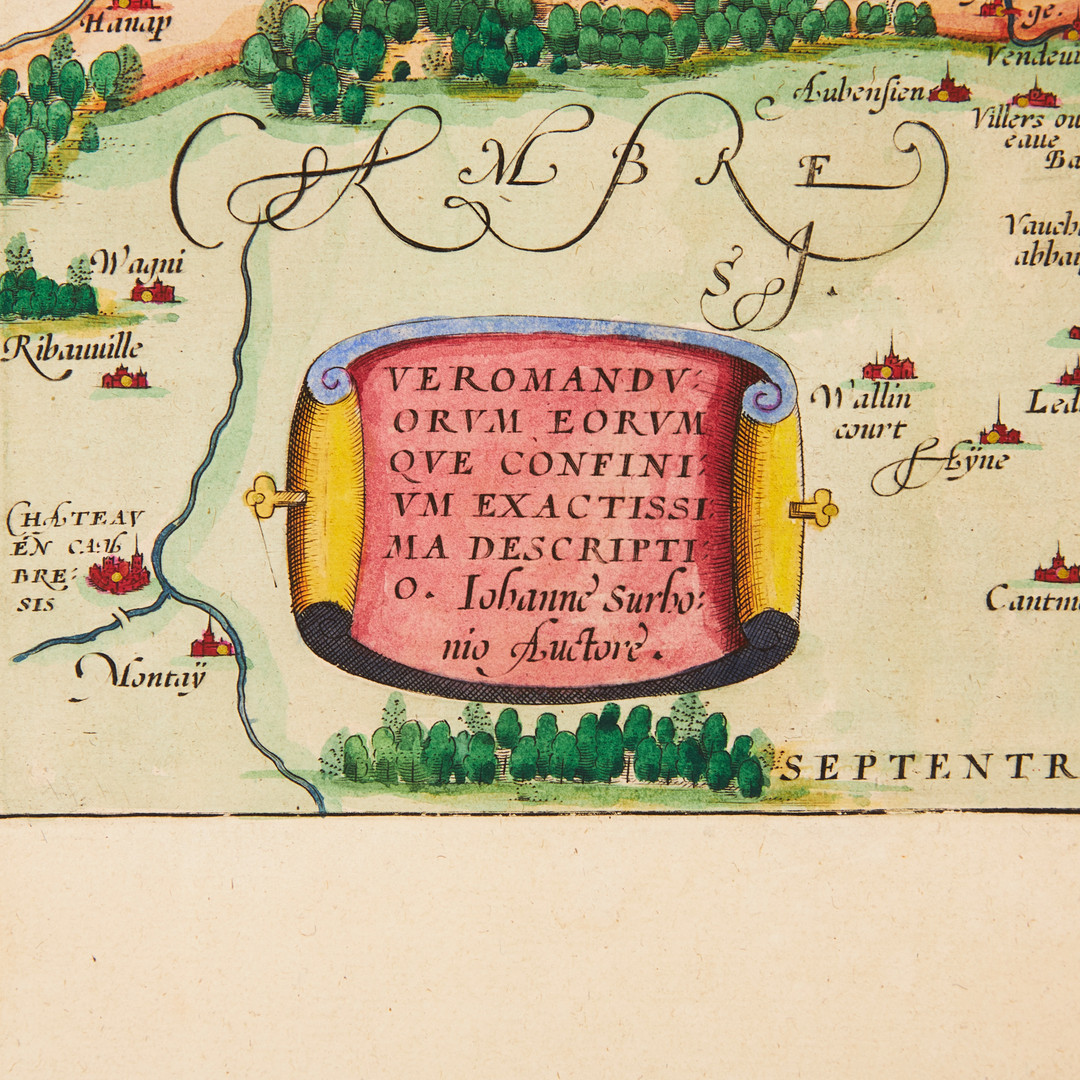 Hanap
ge.
Vendeui
Aubensien
Villers ou
eaue
Ba
CAMBRE
SI.
Vauch
abbay
Wagni
Ribauuille
VEROMANDV:
ORVM EORVM
QVE CONFINI:
VM EXACTISSI:
MA DESCRIPTI:
O. Iohanne Surho:
nio Auctore.
Wallin
court
Led
Lÿne
CHATEAV
EN CAM
BRE:
SIS
Cantm
Montaÿ
SEPTENTR